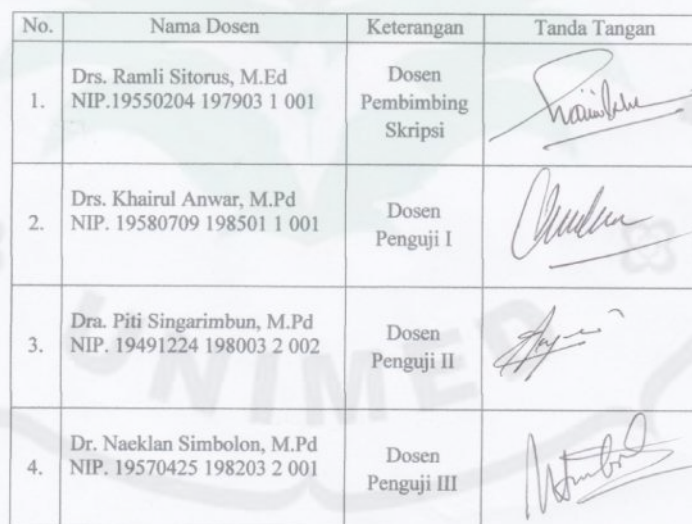 No. Nama Dosen Keterangan Tanda Tangan
1. Drs. Ramli Sitorus, M.Ed
NIP.19550204 197903 1 001
Dosen
Pembimbing
Skripsi
2. Drs. Khairul Anwar, M.Pd
NIP. 19580709 198501 1 001
Dosen
Penguji I
3. Dra. Piti Singarimbun, M.Pd
NIP. 19491224 198003 2 002
Dosen
Penguji II
4. Dr. Naeklan Simbolon, M.Pd
NIP. 19570425 198203 2 001
Dosen
Penguji III
UNIMED